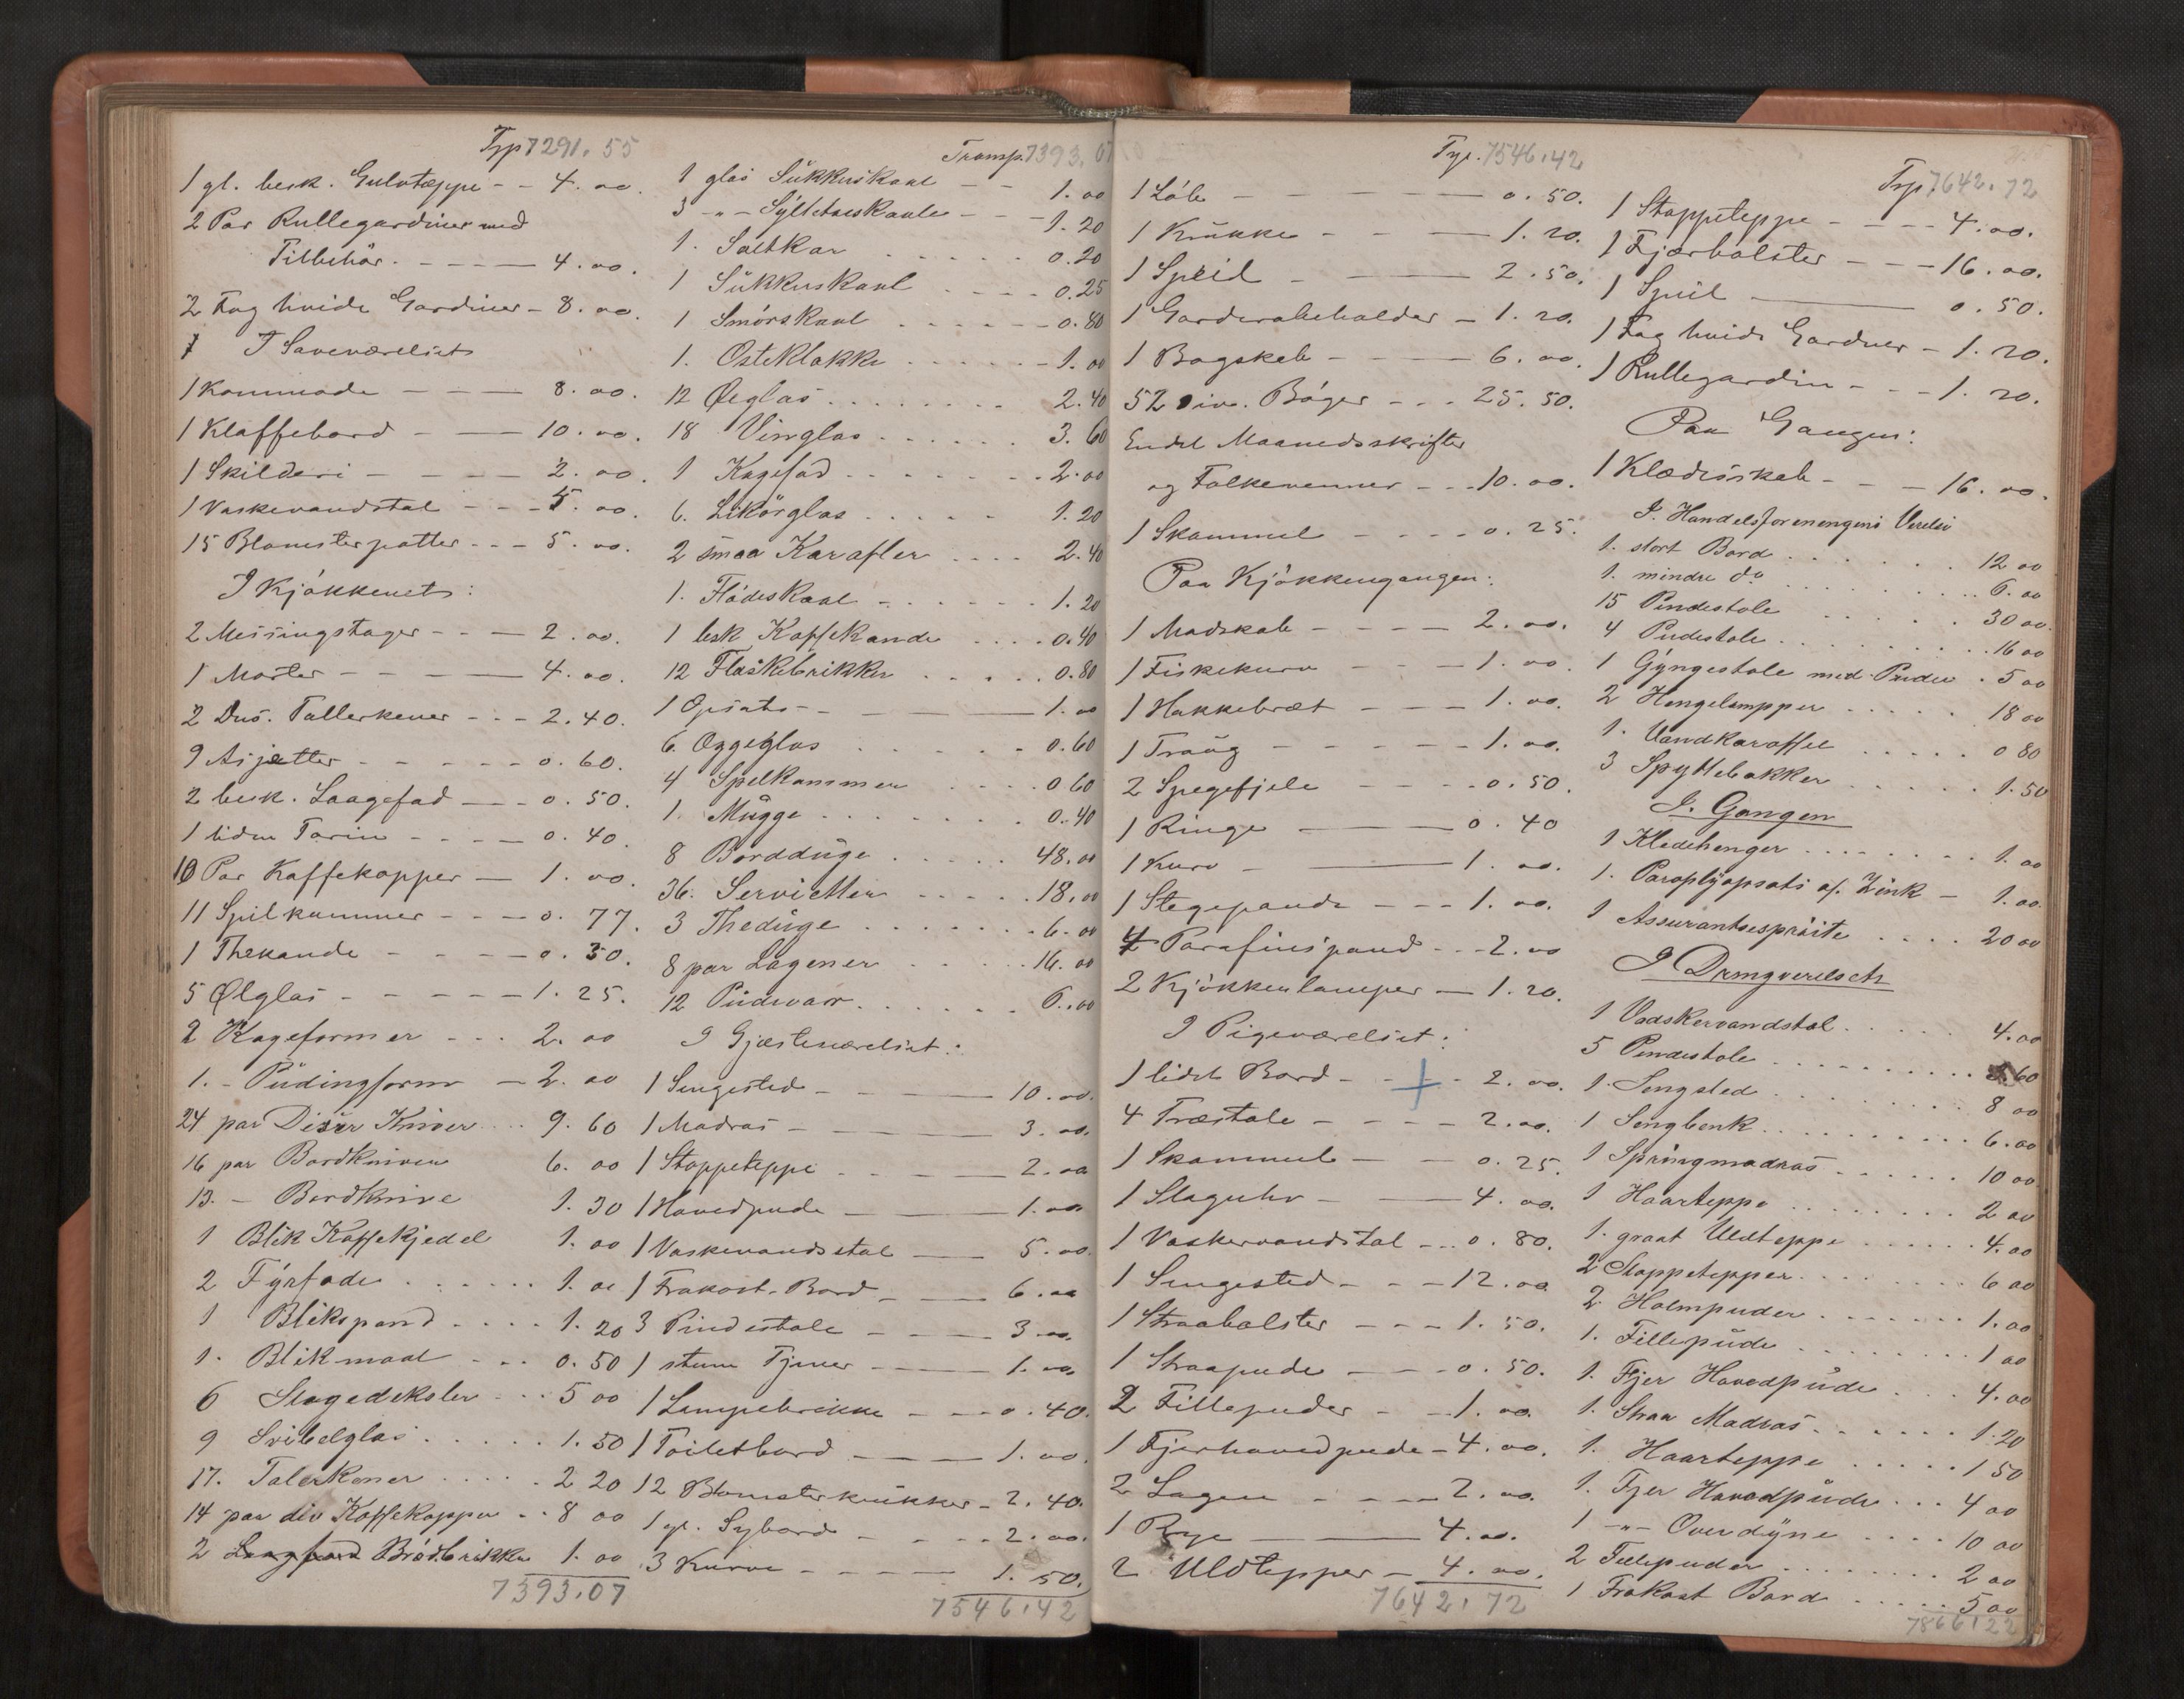 Trsp 7291.55
1 gl. besk. Gulvtæppe - - 4.00.
2 Par Rullegardiner med
Tilbehör. - - - 4.00.
2 Fag hvide Gardiner - 8.00.
I Soveværelset
1 Kommode - - - 8.00.
1 Klaffebord - - 10.00.
1 Skilderi - - - 2.00.
1 Vaskevandstol - - - 5.00.
15 Blomsterpotter - - - 5.00.
I Kjökkenet:
2 Messingstager - - - 2.00.
1 Morter - - - 4.00.
2 Dus. Tallerkener - - - 2.40.
9 Asjetter - - - - 0.60.
2 besk. Laagefad - - - 0.50.
1 liden Terin - - - 0.40.
10 Par Kaffekopper - 1.00.
11 Spilkummer - - - 0.77.
1 Thekande - - - 0.30.
5 Ølglas - - - - - 1.25.
2 Kageformer - - - 2.00
1. - Püdingform - 2.00
24 par Diser Kniver . . 9.60
16 par Bordkniver 6.00
13. - Bordknive 1.30
1 Blik Kaffekjedel 1.00
2 Fÿrfade . . . . . . 1.00
1 Blikspand . . . . 1.20
1. Blikmaal . . . 0.50
6 Stegedeksler . . . 5 00
9 Svibelglas . . . . . 1.50
17. Talerkener . . . . 2 20
14 par div Kaffekopper . . 8 00
2 Brödbrikker 1.00
7393.07
Transp. 7393.07
1 glas Sükkerskaal - - 1.00
3 -"- Sÿltetøiskaale - - - 1.20
1. Saltkar . . . . . . 0.20
1 Sükkerskaal . . . . 0.25
1 Smörskaal . . . . - - 0.80
1. Osteklokke . . . . . . 1.00
12 Ølglas . . . . . . . . 2.40
18 Vinglas . . . . . . 3.60
1 Kagefad . . . . . . . 2.00
6. Likörglas . . . . . 1.20
2 smaa Karafler . . . . 2.40
1. Flödeskaal - . . . . . 1.20
1 besk Kaffekande . . . . 0.40
12 Flaskebrikker . . . . . 0.80
1 Opsats - - - 1.00
6. Eggeglas . . . . . . 0.60
4 Spelkommer . . . . 0 60
1. Mügge . . . . . . . 0.40
8 Borddüge . . . . . 48.00
36. Servietter . . . . . 18.00
3 Thedüge . . . . . . . 6.00
8 par Lagener . . . . . 16.00
12 Püdevaar . . . . . . 6.00
I Gjæsteværelset:
1 Sengested - - - 10.00.
1 Madras - - - 3.00.
1 Stoppeteppe - - - 2.00
1 Hovedpude - - - 1.00
1 Vaskevandsstol - - 5.00
1 Frokost-Bord - - 6.00
3 Pindestole - - - 3.00.
1 stum Tjener - - - 1.00.
1 Lampebrikke - - - 0.40.
1 Toiletbord - - - 1.00.
12 Blomsterkrükker - 2.40.
1 gl. Sybord - - - - 2.00.
3 Kurve - - - - - 1.50.
7546.42
Trsp. 7546.42
1 Løb - - - - - 0.50.
1 Krükke - - - 1.20.
1 Speil - - - 2.50.
1 Garderobeholder - 1.20.
1 Bogskab - - - - 6.00.
52 div. Bøger - - - 25.50.
Endel Maanedsskrifter
og Folkevenner - - - 10.00.
1 Skammel - - - - 0.25.
Paa Kjökkengangen:
1 Madskab - - - - 2.00.
1 Fiskekurv - - - 1.00.
1 Hakkebræt - - - 1.00.
1 Traüg - - - - - 1.00.
2 Spegefjele - - - - 0.50.
1 Ringe - - - 0.40
1 Kurv - - - 1.00.
1 Stegepande - - - 1.00.
4 Parafinspand - - - 2.00
2 Kjökkenlamper - 1.20.
I Pigeværelset:
1 lidet Bord - - - - 2.00.
4 Træstole - - - - 2.00.
1 Skammel - - 0.25.
1 Slaguhr - - - 4.00.
1 Vaskevandstol - - - 0.80.
1 Sengested - - - 12.00
1 Straabolster - - - 1.50.
1 Straapude - - - 0.50.
2 Fillepuder - - - 1.00.
1 Fjerhovedpude - 4.00.
2 Lagen - - - - 2.00.
1 Rye - - - 4.00.
2 Uldtepper - 4.00.
7642.72
Trsp. 7642.72
1 Stoppeteppe - - - - 4.00.
1 Fjærbolster - - - 16.00.
1 Speil - - - 0.50.
1 Fag hvide Gardiner - 1.20.
1 Rullegardin - - - 1.20.
Paa Gangen:
1 Klædesskab - - - 16.00.
I. Handelsforeningens Verelse
1. stort Bord . . . . . . . 12 00
1. mindre do . . . . . . . . 6.00
15 Pindestole . . . . . . 30 00.
4 Pudestole . . . . . . . . 16 00
1 Gÿngestole med Puder . 5 00
2 Hengelampper . . . . . 18 00
1. Vandkaraffel . . . . . 0 80
3 Spyttebakker . . . . . . 1.50
I. Gangen
1 Kledehenger . . . . . . . 1.00
1. Paraplÿopsats af. Zink - 1.00.
1 Assurantsesprøite . . . . 20 00
I Drengverelset
1 Vadskervandstol . . . . . 4.00
5 Pindestole . . . . . . . . . 60
1. Sengsted . . . . . . . . 8 00
1 Sengbenk . . . . . . . . . 6.00
1 Springmadras . . . . . . 10 00
1 Haarteppe . . . . . . . . 2 00
1. graat Uldteppe . . . . . . 4.00
2 Stoppetepper . . . . . . . . 6 00
2 Halmpuder . . . . . . . 1.00
1. Fillepüde . . . . . . . . 1 00
1. Fjer Hovedpüde . . . 4.00
1. Straa Madras . . . . . . 1.20
1. Haarteppe . . . . . 1 50
1. Fjer Hovedpüde . . . 4 00
1 -"- Overdÿne . . . . 10 00
2 Fillepuder . . . . . . . . 2 00
1 Frokost Bord . . . . . 5 00
7866.22